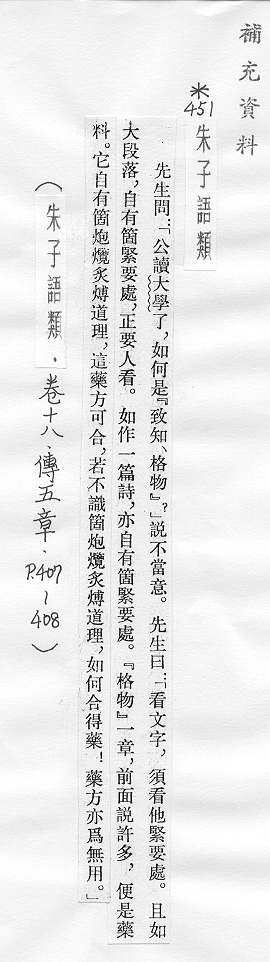 補充資料
*451
朱子語類
先生問:「公讀大學了,如何是『致知、格物』?」説不當意。 先生曰:「看文字, 須看他緊要處。且如
大段落,自有箇緊要處,正要人看。如作一篇詩,亦自有箇緊要處。『格物』一章,前面説許多,便是藥
料。它自有箇炮爁炙煿道理,這藥方可合,若不識箇炮爁炙煿道理,如何合得藥!藥方亦爲無用。」
(朱子語類.卷十八.傳五章.P.407~408)